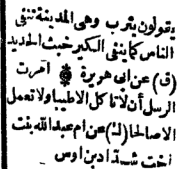 يقولون يثرب وهى المدينة تنفى
الناس كما ينفى الكير خبث الحديد
(ق) عن ابى هريرة ۞ امرت
الرسل أن لا تأكل الاطيبا ولا تعمل
الاصالحا (ك) عن ام عبدالله بنت
أخت شداد بن اوس